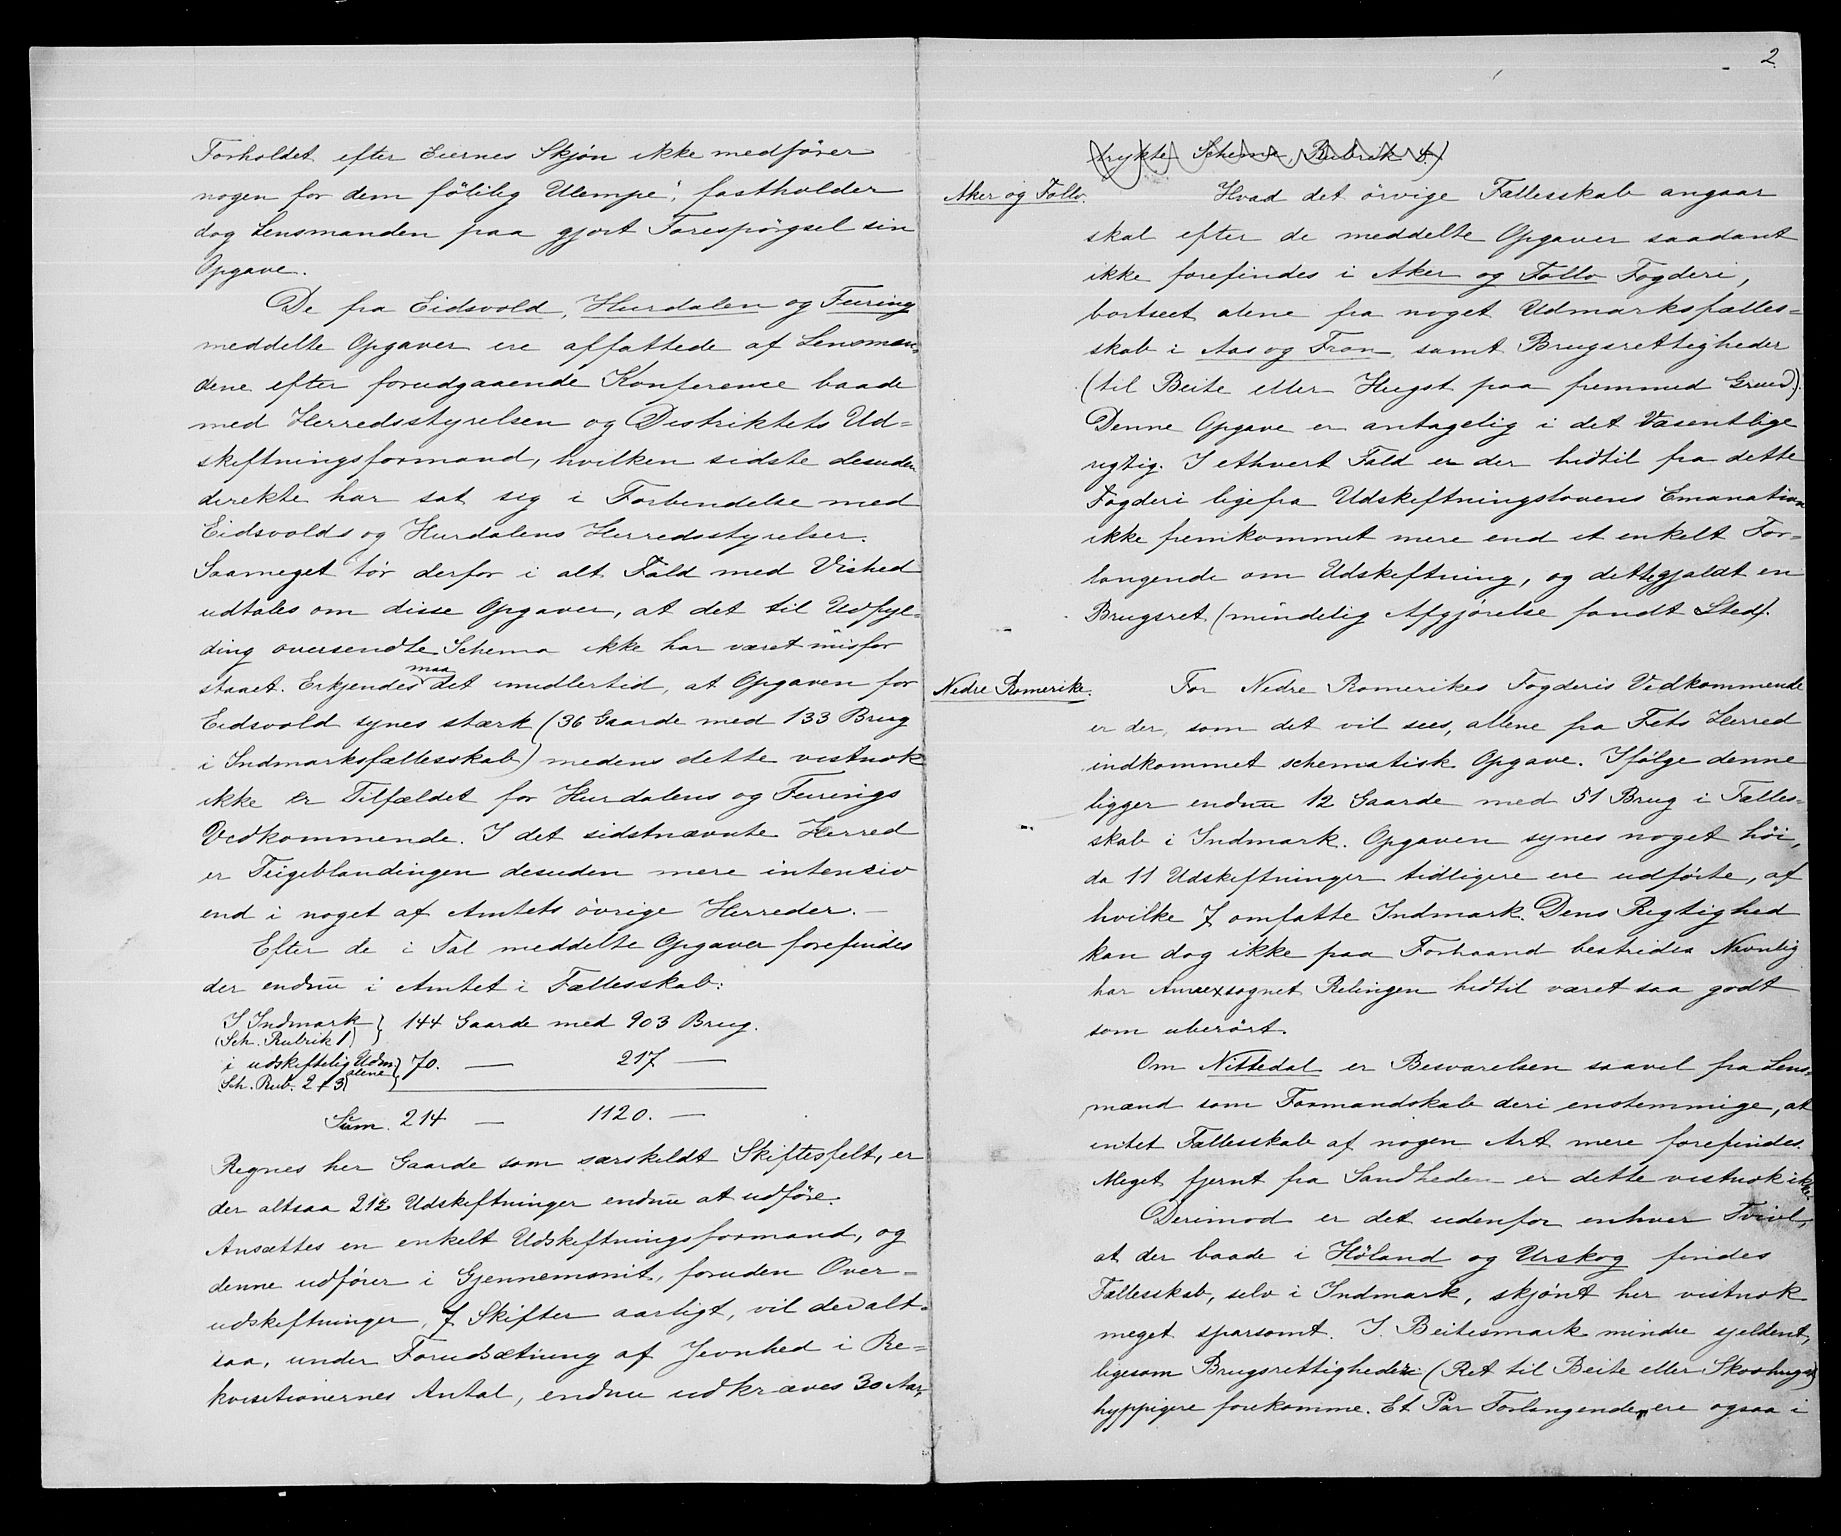 Forholdet efter Eiernes Skjøn ikke medfører
nogen for dem følelig Ulempe", fastholder
dog Lensmanden paa gjort Forespørgsel sin
Opgave.
De fra Eidsvold, Hurdalen og Feiring
meddelte Opgaver ere affattede af Lensmæn-
dene efter forudgaaende Konference baade
med Herredsstyrelsen og Distriktets Ud=
skiftningsformand, hvilken sidste desuden
direkte har sat sig i Forbindelse med
Eidsvolds og Hurdalens Herredsstyrelser.
Saameget tør derfor i alt Fald med Vished
udtales om disse Opgaver, at det til Udfyl=
ding oversendte Schema ikke har været misfor
staaet. Erkjendes maa det imidlertid, at Opgaven for
Eidsvold synes stærk (36 Gaarde med 133 Brug
i Indmarksfællesskab) medens dette vistnok
ikke er Tilfældet for Hurdalens og Feirings
Vedkommende. I det sidstnævnte Herred
er Teigeblandingen desuden mere intensiv
end i noget af Amtets øvrige Herreder. —
Efter de i Tal meddelte Opgaver forefindes
der endnu i Amtet i Fællesskab:
I Indmark } 144 Gaarde med 903 Brug.
(Sch. Rubrik 1)
i udskiftelig Udm. alene } 70. — 217 —
(Sch. Rub. 2 + 3)
Sum. 214 — 1120. —
Regnes her Gaarde som særskildt Skiftesfelt, er
der altsaa 212 Udskiftninger endnu at udføre.
Ansættes en enkelt Udskiftningsformand, og
denne udfører i Gjennemsnit, foruden Over=
udskiftninger, 7 Skifter aarligt, vil der alt=
saa, under Forudsætning af Jevnhed i Re=
kvisitionernes Antal, endnu udkræves 30 Aar,
2
trykte Schema, Rubrik 4.)
Aker og Follo.
Hvad det øvrige Fællesskab angaar
skal efter de meddelte Opgaver saadant
ikke forefindes i Aker og Follo Fogderi,
bortseet alene fra noget Udmarksfælles=
skab i Aas og Fron samt Brugsrettigheder
(til Beite eller Hugst paa fremmed Grund).
Denne Opgave er antagelig i det Væsentlige
rigtig. I ethvert Fald er der hidtil fra dette
Fogderi lige fra Udskiftningslovens Emanation
ikke fremkommet mere end et enkelt For=
langende om Udskiftning, og dette gjaldt en
Brugsret (mindelig Afgjørelse fandt Sted).
Nedre Romerike.
For Nedre Romerikes Fogderis Vedkommende
er der, som det vil sees, allene fra Fets Herred
indkommet schematisk Opgave. Ifølge denne
ligger endnu 12 Gaarde med 51 Brug i Fælles=
skab i Indmark. Opgaven synes noget høi,
da 11 Udskiftninger tidligere ere udførte, af
hvilke 7 omfatte Indmark. Dens Rigtighed
kan dog ikke paa Forhaand bestrides Navnlig
har Annexsognet Relingen hidtil været saa godt
som uberørt.
Om Nittedal er Besvarelsen saavel fra Lens=
mand som Formandskab deri enstemmige, at
intet Fællesskab af nogen Art mere forefindes.
Meget fjernt fra Sandheden er dette vistnok ikke.
Derimod er det udenfor enhver Tvivl,
at der baade i Høland og Urskog findes
Fællesskab, selv i Indmark, skjønt her vistnok
meget sparsomt. I Beitesmark mindre sjeldent,
ligesom Brugsrettigheder (Ret til Beite eller Skovhugst)
hyppigere forekomme. Et Par Forlangender ere ogsaa i